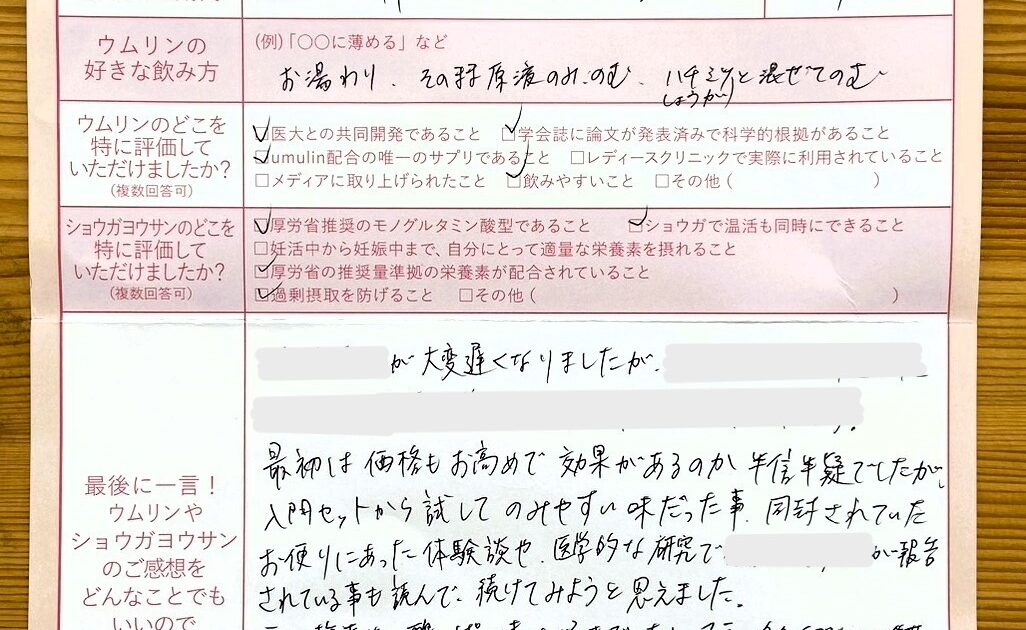 ウムリンの
好きな飲み方
(例)「〇〇に薄める」など
お湯わり、そのまま原液のみのむ、ハチミツと混ぜてのむ
しょうが
ウムリンのどこを
特に評価して
いただけましたか?
(複数回答可)
☑医大との共同開発であること ☑学会誌に論文が発表済みで科学的根拠があること
☑umulin配合の唯一のサプリであること □レディースクリニックで実際に利用されていること
□メディアに取り上げられたこと ☑飲みやすいこと □その他( )
ショウガヨウサンのどこを
特に評価して
いただけましたか?
(複数回答可)
☑厚労省推奨のモノグルタミン酸型であること ☑ショウガで温活も同時にできること
□妊活中から妊娠中まで、自分にとって適量な栄養素を摂れること
☑厚労省の推奨量準拠の栄養素が配合されていること
☑過剰摂取を防げること □その他( )
最後に一言!
ウムリンや
ショウガヨウサン
のご感想を
どんなことでも
いいので
が大変遅くなりましたが、
最初は価格もお高めで効果があるのか半信半疑でしたが、
入門セットから試してのみやすい味だった事、同封されていた
お便りにあった体験談や、医学的な研究で が報告
されている事も読んで、続けてみようと思えました。